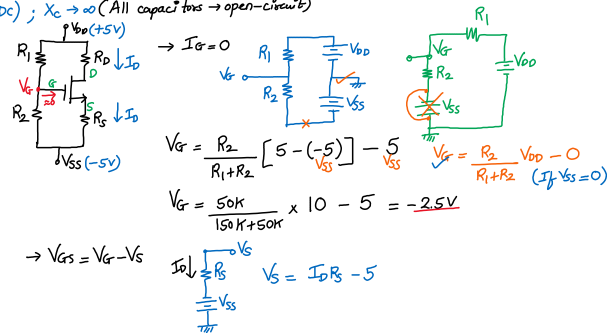 DC) ; Xc → ∞ (All capacitors → open-circuit)
VDD (+5V)
R1 RD ↓ID
D
VG G
≈0
S
R2 RS ↓ID
VSS (-5V)
→ IG = 0
R1 VDD
VG
R2 VSS
R1
VG
R2 VDD
VSS
VG = R2 / R1+R2 [5 - (-5)] - 5
VSS VSS
VG = R2 / R1+R2 VDD - 0
(If VSS = 0)
VG = 50K / 150K+50K × 10 - 5 = -2.5V
→ VGS = VG - VS
VS
ID↓ RS
VSS
VS = IDRS - 5